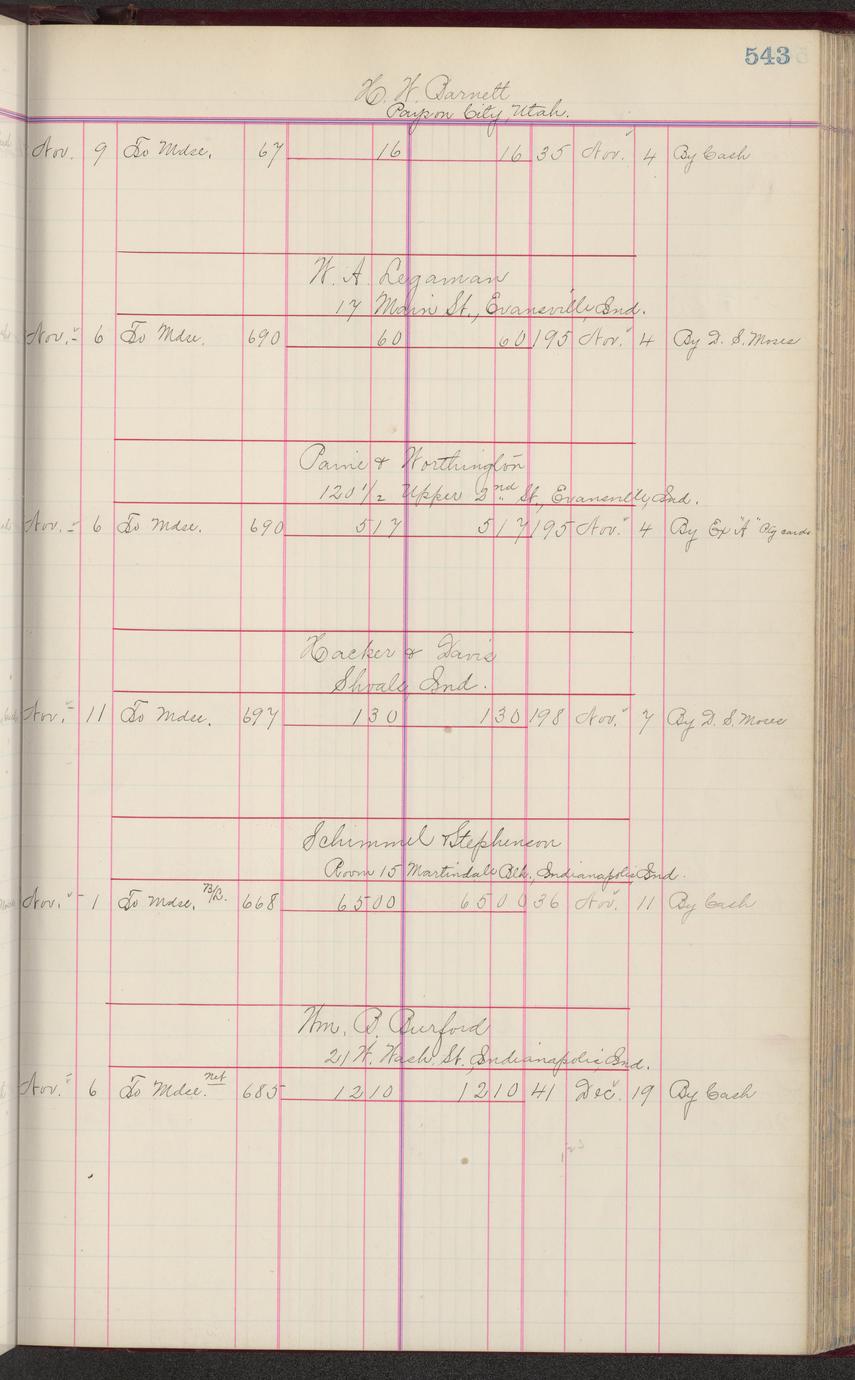 543
H. W. Barnett
Payson City, Utah.
Nov. 9 To Mdse. 67 16 16 35 Nov. 4 By Cash
W. A. Legaman
17 Main St., Evansville, Ind.
Nov. 6 To Mdse. 690 60 60 195 Nov. 4 By D. S. Moses
Paine & Worthington
120 1/2 Upper 2nd St., Evansville, Ind.
Nov. 6 To Mdse. 690 517 517 195 Nov. 4 By Ex "A"
Hacker & Davis
Shoals Ind.
Nov. 11 To Mdse. 697 130 130 198 Nov. 7 By D. S. Moses
Schimmel & Stephenson
Room 15 Martindale Blk, Indianapolis Ind.
Nov. 1 To Mdse. 668 6500 6500 36 Nov. 11 By Cash
Wm. B. Burford
21 W. Wash. St. Indianapolis, Ind.
Nov. 6 To Mdse. net 685 1210 1210 41 Dec. 19 By Cash